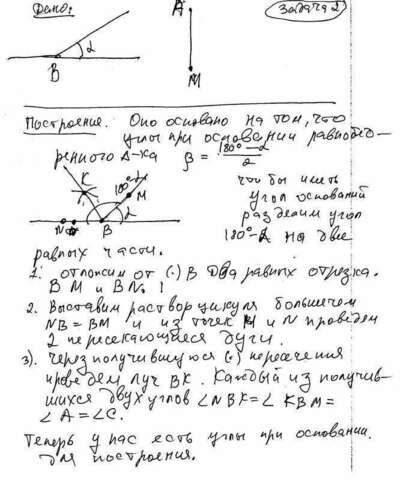 Дано:
Задача 2
A
α
B
M
Построение. Оно основано на том, что
углы при основании равнобед-
ренного Δ-ка β = 180°-α / 2
K
180°-α
M
чтобы иметь
угол оснований
α
разделим угол
N
B
180°-α на две
равных части.
1. отложим от (·) B два равных отрезка.
BM и BN.
2. Выставим раствор циркуля больше чем
NB = BM и из точек M и N проведем
2 пересекающиеся дуги.
3). Через получившуюся (·) пересечения
проведем луч BK. Каждый из получив-
шихся двух углов ∠NBK = ∠KBM =
∠A = ∠C.
Теперь у нас есть углы при основании.
для построения.